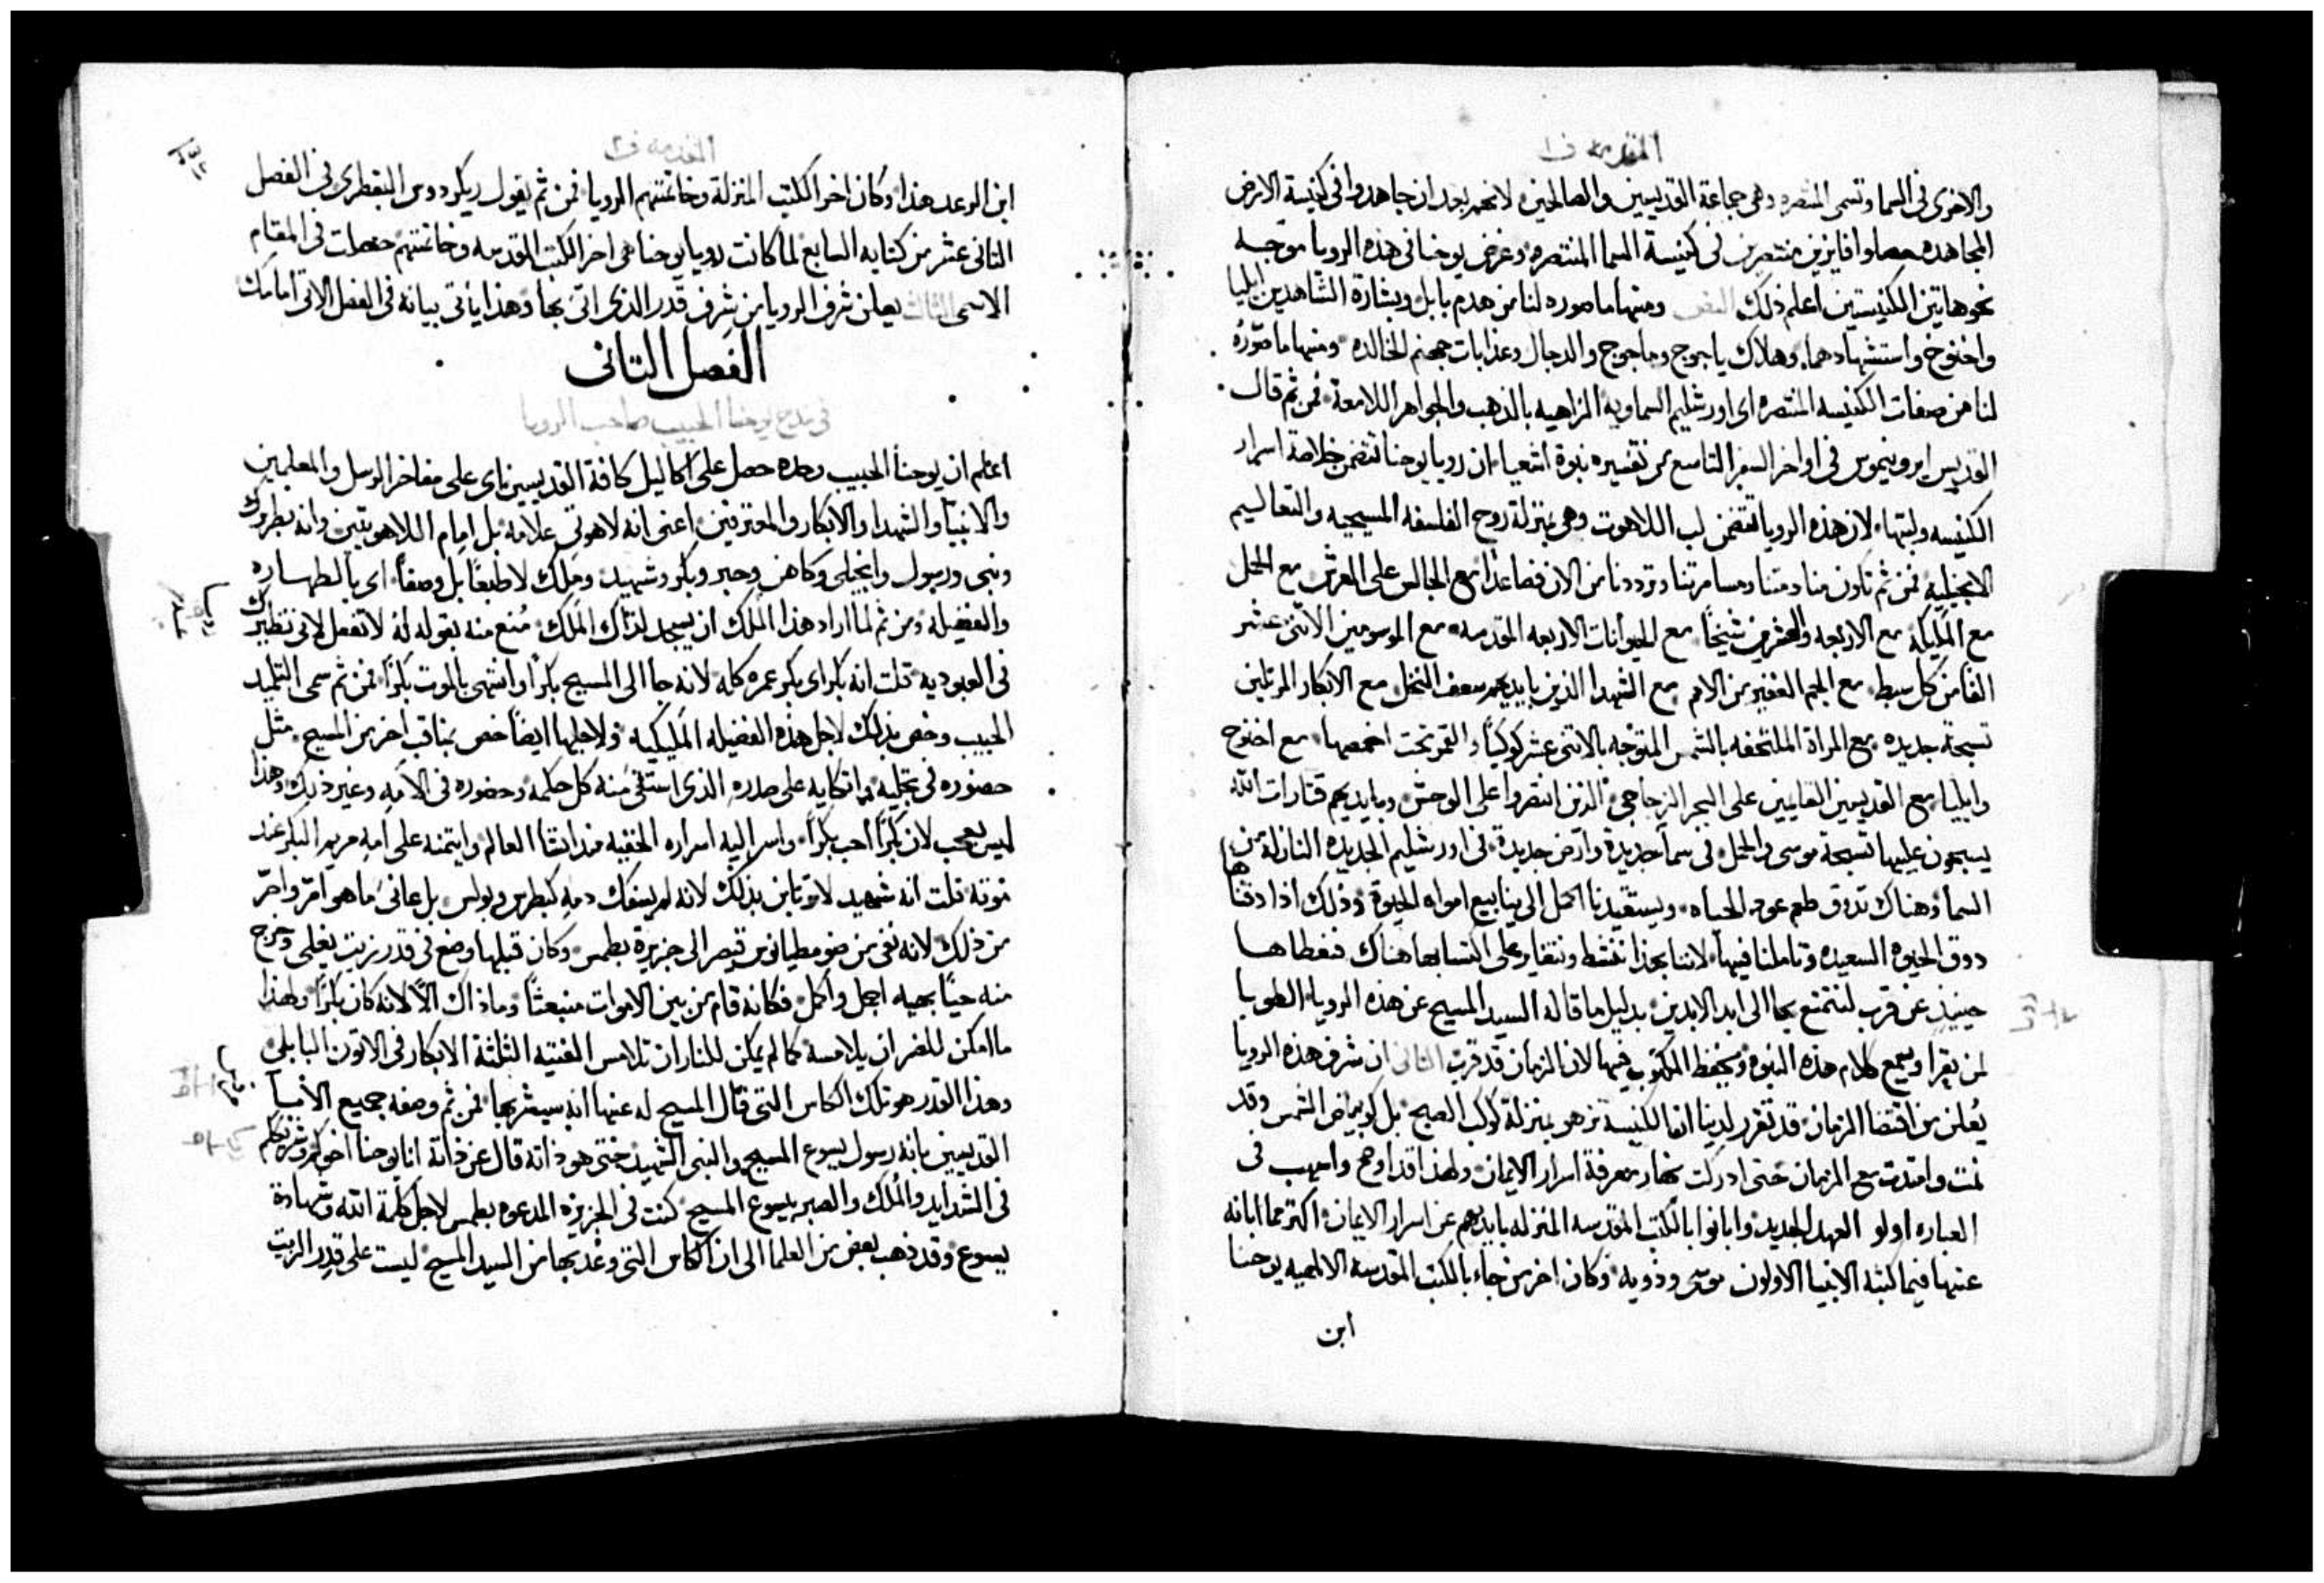 المقدمه ف١
والاخرى في السما وتسمى المنتصره وهي جماعة القديسين والصالحين لانهم بعد ان جاهدوا في كنيسة الارض
المجاهده حصلوا فايزين منتصرين في كنيسة السما المنتصره وغرض يوحنا في هذه الرويا موجه
نحو هاتين الكنيستين اعلم ذلك ومنها ما صوره لنا من هدم بابل وبشارة الشاهدين ايليا
واخنوخ واستشهادهما وهلاك ياجوج وماجوج والدجال وعذابات جهنم الخالده ومنها ما صوّره
لنا من صفات الكنيسه المنتصره اي اورشليم السماويه الزاهيه بالذهب والجواهر اللامعة فمن ثم قال
القديس ايرونيموس في اواخر السفر التاسع من تفسيره نبوة اشعيا ان رويا يوحنا تتضمن خلاصة اسرار
الكنيسه ولبتها لان هذه الرويا تتضمن لب اللاهوت وهي بمنزلة روح الفلسفه المسيحيه والتعاليم
الانجيليه فمن ثم تكون منادمتنا ومسامرتنا وترددنا من الان فصاعدًا مع الجالس على العرش مع الحمل
مع المليكه مع الاربعه والعشرين شيخًا مع الحيوانات الاربعه المقدسه مع الموسومين الاثنى عشر
الفًا من كل سبط مع الجم الغفير من الامم مع الشهدا الذين بايديهم سعف النخل مع الابكار المرتلين
تسبحة جديده مع المراة الملتحفه بالشمس المتوجه بالاثني عشر كوكبًا والقمر تحت اخمصها مع اخنوخ
وايليا مع القديسين القايمين على البحر الزجاجي الذين انتصروا على الوحش وبايديهم قتارات الله
يسبحون عليها تسبحة موسى والحمل في سما جديدة وارض جديدة في اورشليم الجديده النازلة من
السما وهناك نذوق طعم عود الحياه ويستقيدنا الحمل الى ينابيع امواه الحيوة وذلك اذا ذقنا هنا
ذوق الحيوة السعيده وتاملنا فيها لاننا بهذا ننشط وننقاد على اكتسابها هناك فنعطاها
حينيذٍ عن قرب لنتمتع بها الى ابد الابدين بدليل ما قاله السيد المسيح عن هذه الرويا الطوبا
لمن يقرا ويسمع كلام هذه النبوه ويحفظ المكتوب فيها لان الزمان قد قرب الثاني ان شرف هذه الرويا
يُعلن من اقتضا الزمان قد تقرر لدينا ان الكنيسة تزهو بمنزلة كوكب الصبح بل كوبياض الشمس وقد
نمت وامتدت مع الزمان حتى ادركت نهار معرفة اسرار الايمان ولهذا قد اوضح واسهب في
العباره اولو العهد الجديد وابانوا بالكتب المقدسه المنزله بايديهم عن اسرار الايمان اكثر مما ابانه
عنها فيما كتبه الانبيا الاولون موسى وذويه وكان اخر من جاء بالكتب المقدسة الالهيه يوحنا
ابن
المقدمه ف٢
ابن الرعد هذا وكان اخر الكتب المنزلة وخاتمتهم الرويا فمن ثم يقول ريكردوس البقطري في الفصل
الثاني عشر من كتابه السابع لما كانت رويا يوحنا هي اخر الكتب المقدسه وخاتمتهم حصلت في المقام
الاسمى الثالث يعلن شرف الرويا من شرف قدر الذي اتى بها وهذا ياتي بيانه في الفصل الاتي امامك
الفصل الثاني
في مدح يوحنا الحبيب صاحب الرويا
اعلم ان يوحنا الحبيب وحده حصل على اكاليل كافة القديسين اي على مفاخر الرسل والمعلمين
والانبيا والشهدا والابكار والمعترفين اعني انه لاهوتي علامه بل امام اللاهوتيين وانه بطرك
ونبي ورسول وانجيلي وكاهن وحبر وبكر وشهيد وملك لا طبعًا بل وصفًا اي بالطهاره
والفضيله ومن ثم لما اراد هذا الملك ان يسجد لذاك الملك مُنع منه بقوله له لا تفعل لاني نظيرك
في العبوديه قلت انه بكر اي بكر عمره كله لانه جا الى المسيح بكرًا وانتهى بالموت بكرًا فمن ثم سمى التلميذ
الحبيب وخص بذلك لاجل هذه الفضيله المليكيه ولاجلها ايضًا خص بمناقب اخر من المسيح مثل
حضوره في تجليه واتكايه على صدره الذي استقى منه كل حكمه وحضوره في الامه وغير ذلك وهذا
ليس بعجب لان بكرًا احب بكرًا واسر اليه اسراره الخفيه منذ انشا العالم وايتمنه على امه مريم البكر عند
موته قلت انه شهيد لا ترتابن بذلك لانه لم يسفك دمه كبطرس وبولس بل عانى ما هو امرّ واحرّ
من ذلك لانه نفي من ضومطيانوس قيصر الى جزيرة بطمس وكان قبلها وضع في قدر زيت يغلي وخرج
منه حيًا بهيه اجمل واكمل فكانه قام من بين الاموات منبعثًا وما ذاك الا لانه كان بكرًا ولهذا
ما امكن للضر ان يلامسه كما لم يمكن للنار ان تلامس الفتيه الثلثة الابكار في الاتون البابلي
وهذا القدر هو تلك الكاس التي قال المسيح له عنها انه سيشربها فمن ثم وصفه جميع الابآ
القديسين بانه رسول يسوع المسيح والنبي الشهيد حتى هو ذاته قال عن ذاته انا يوحنا اخوكم وشريككم
في الشدايد والمُلك والصبر بيسوع المسيح كنت في الجزيرة المدعوه بطمس لاجل كلمة الله وشهادة
يسوع وقد ذهب بعض من العلما الى ان الكاس التي وعد بها من السيد المسيح ليست على قدر الزيت